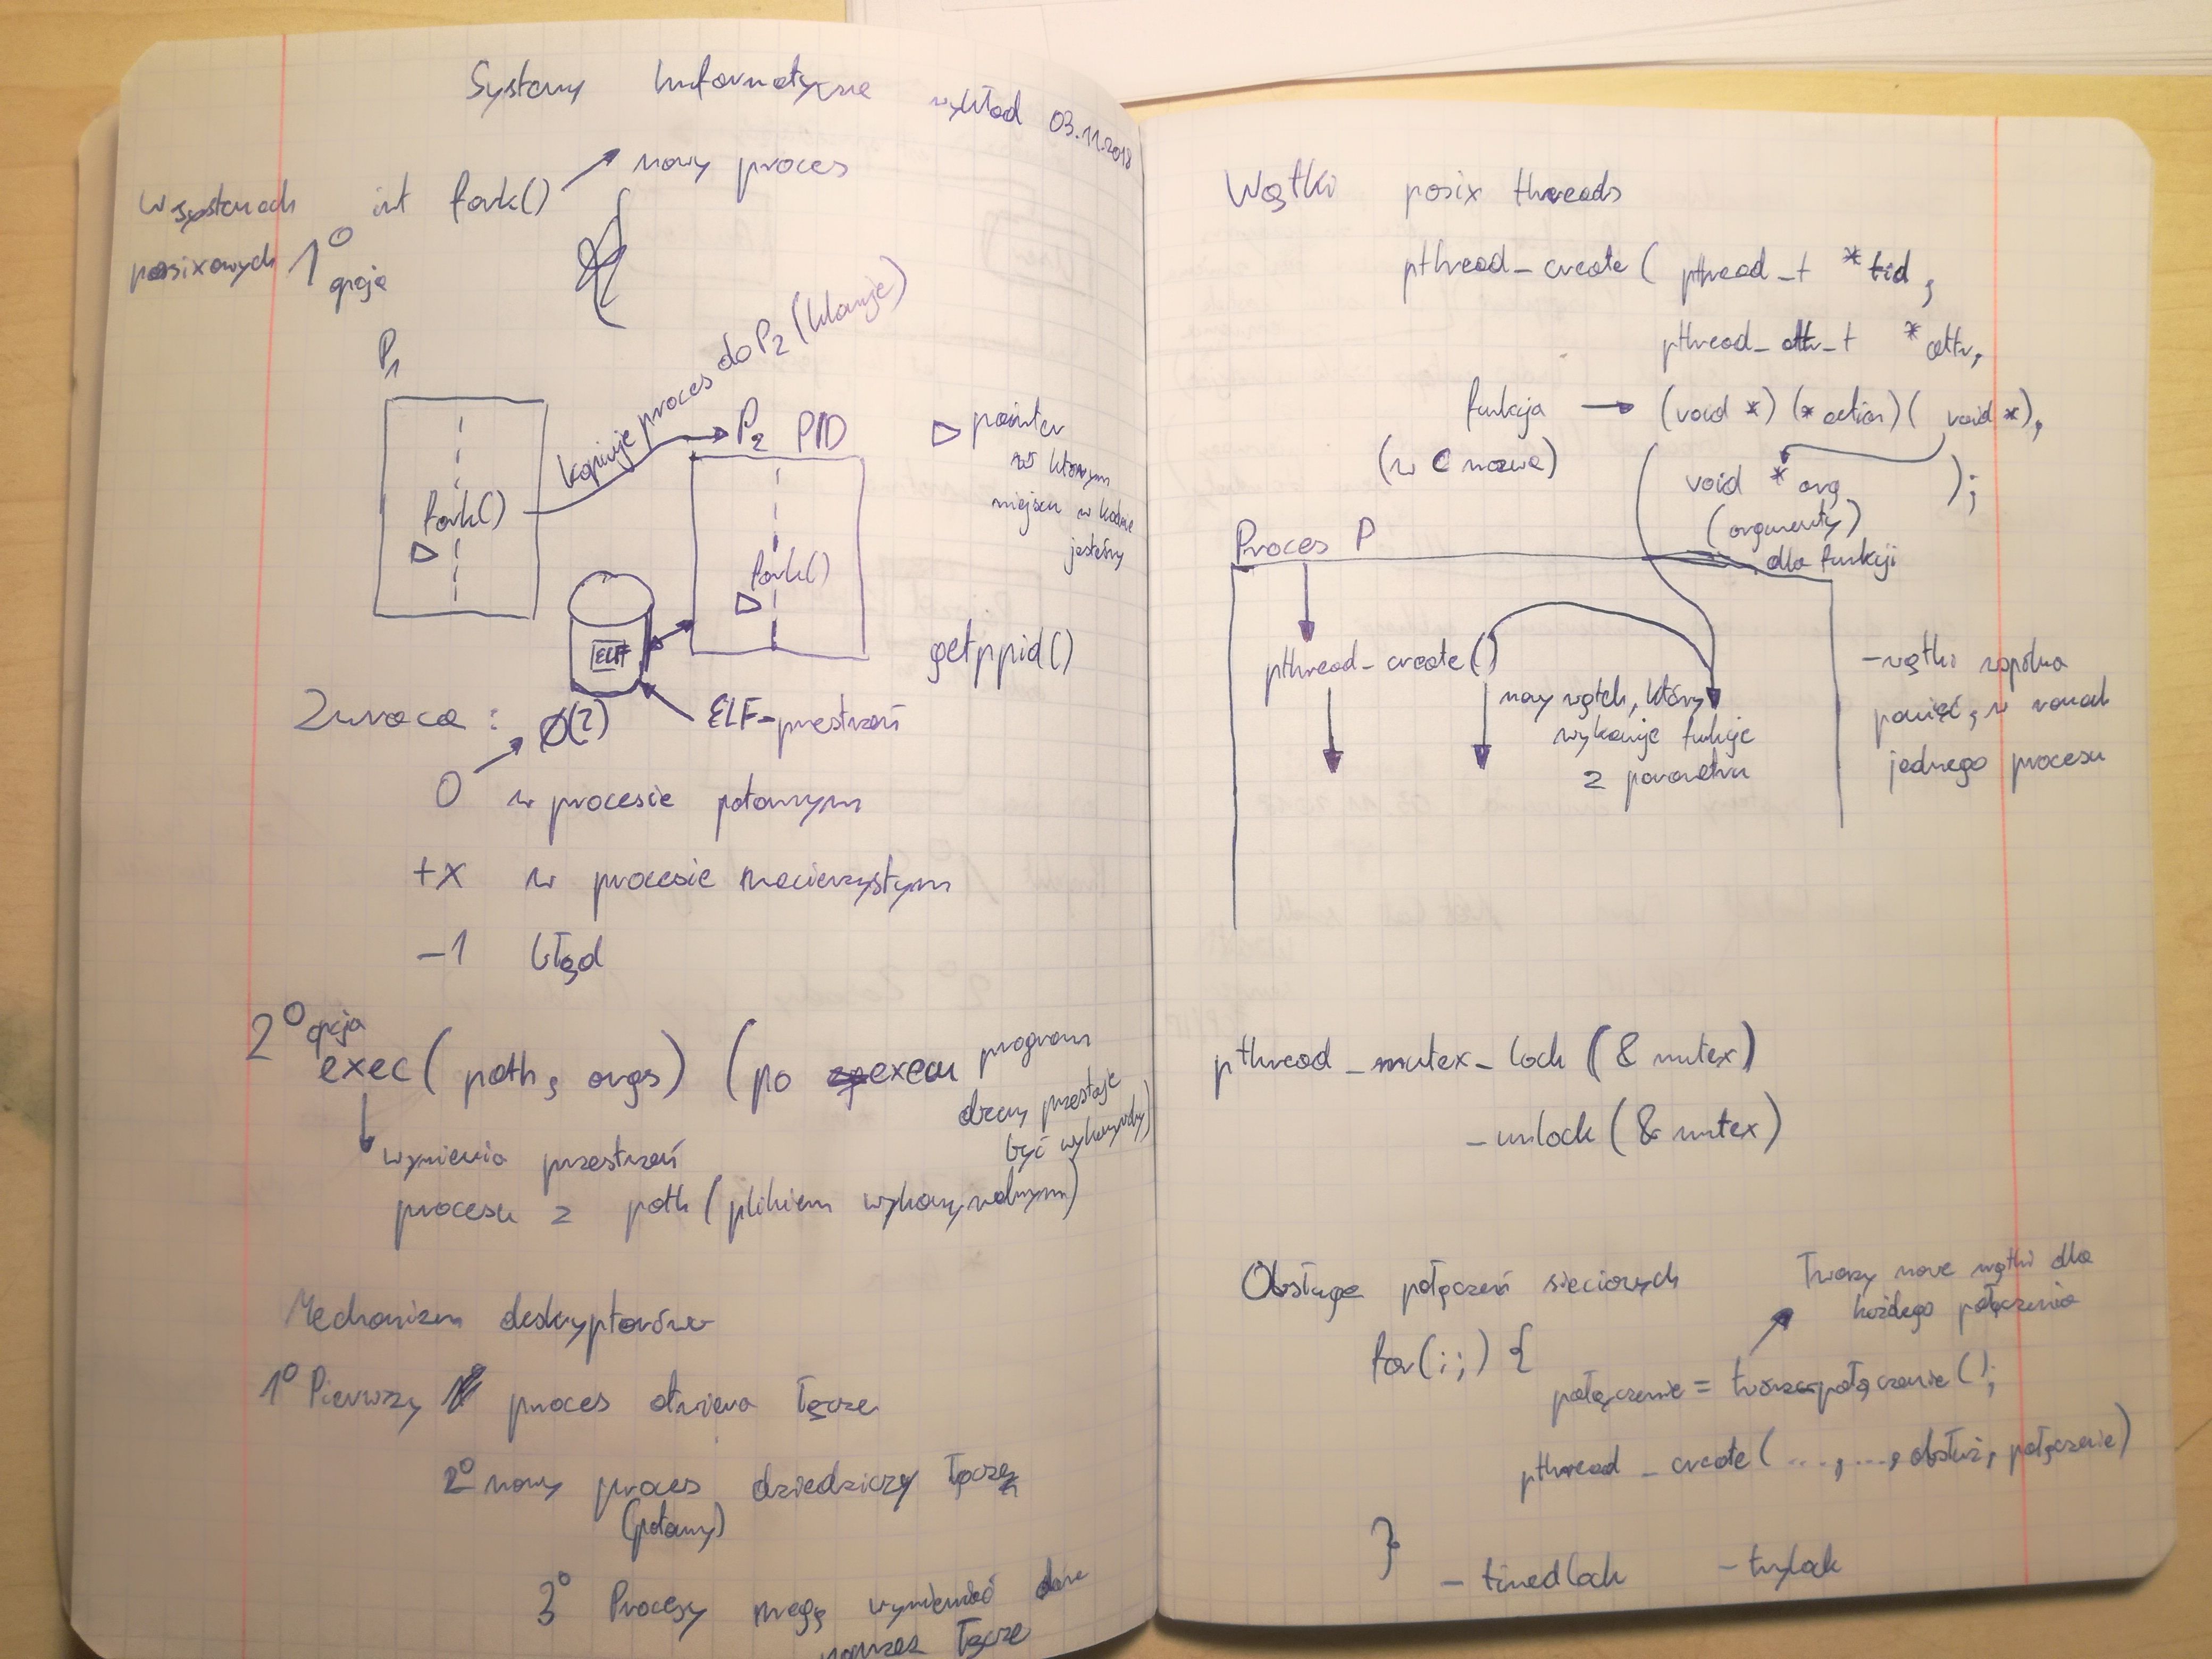 Systemy Informatyczne wykład 03.11.2018
W systemach
posixowych
1° opcja
int fork()
nowy proces
P1
kopiuje proces do P2 (klonuje)
fork()
P2 PID
fork()
pointer
w którym
miejscu w kodzie
jesteśmy
getppid()
ELF
ELF-przestrzeń
Zwraca: Ø(?)
0 w procesie potomnym
+x w procesie macierzystym
-1 błąd
2° opcja
exec(path, args) (po execu program
dalszy przestaje
być wykonywalny)
wymienia przestrzeń
procesu z path (plikiem wykonywalnym)
Mechanizm deskryptorów
1° Pierwszy proces otwiera łącze
2° nowy proces dziedziczy łącze
(potomny)
3° Procesy mogą wymieniać dane
poprzez łącze
Wątki posix threads
pthread_create( pthread_t *tid,
pthread_attr_t *attr,
funkcja → (void *) (*action)( void *),
(w C nazwa)
void * arg );
(argumenty)
dla funkcji
Proces P
pthread_create()
nowy wątek, który
wykonuje funkcje
z parametru
- wątki wspólna
pamięć, w ramach
jednego procesu
pthread_mutex_lock (& mutex)
-unlock (& mutex)
Obsługa połączeń sieciowych
Tworzy nowe wątki dla
każdego połączenia
for(;;) {
połączenie = twórzpołączenie();
pthread_create(..., ..., obsłuż, połączenie)
}
- timedlock - trylock